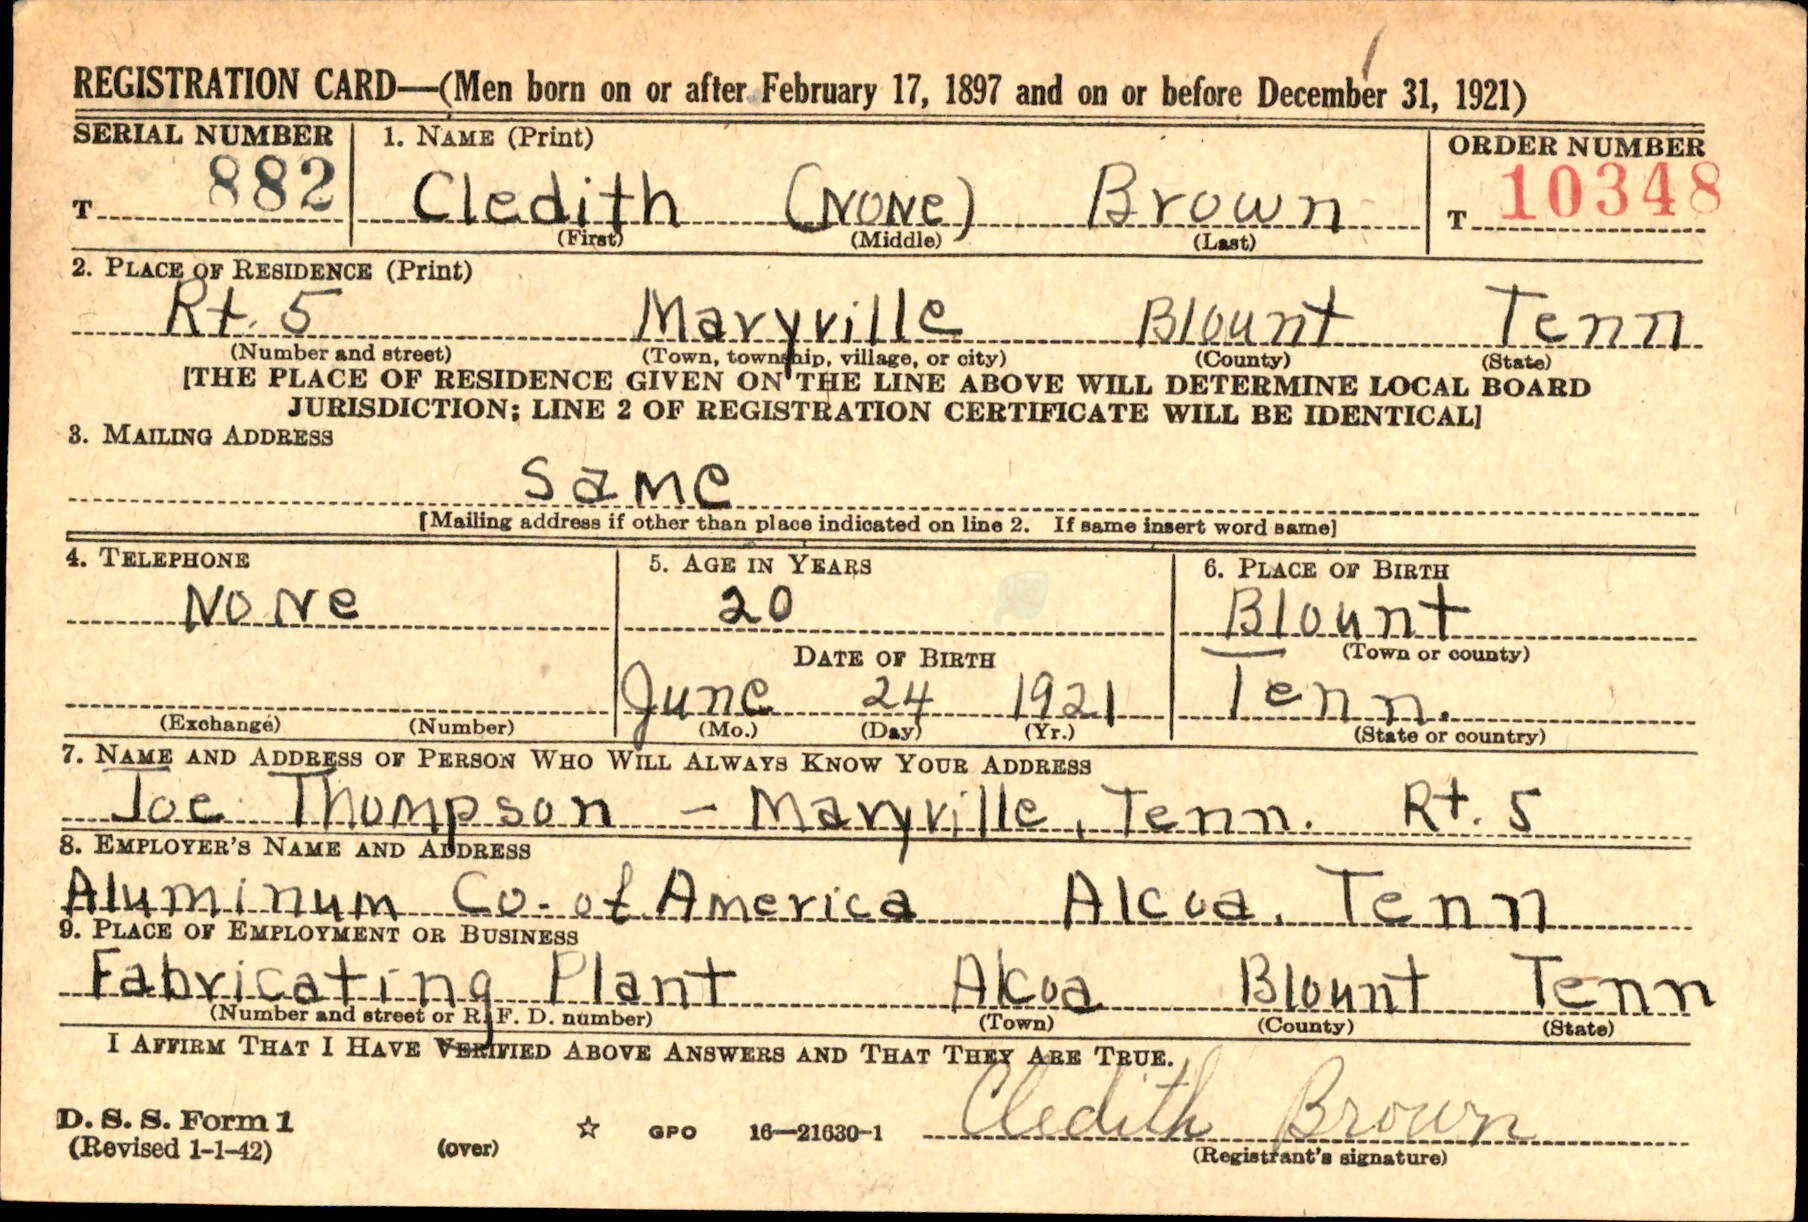 REGISTRATION CARD—(Men born on or after February 17, 1897 and on or before December 31, 1921)
SERIAL NUMBER 1. NAME (Print) ORDER NUMBER
T 882 Cledith (NONe) Brown T 10348
(First) (Middle) (Last)
2. PLACE OF RESIDENCE (Print)
Rt. 5 Maryville Blount Tenn
(Number and street) (Town, township, village, or city) (County) (State)
[THE PLACE OF RESIDENCE GIVEN ON THE LINE ABOVE WILL DETERMINE LOCAL BOARD
JURISDICTION; LINE 2 OF REGISTRATION CERTIFICATE WILL BE IDENTICAL]
3. MAILING ADDRESS
Same
[Mailing address if other than place indicated on line 2. If same insert word same]
4. TELEPHONE 5. AGE IN YEARS 6. PLACE OF BIRTH
NONe 20 Blount
(Town or county)
DATE OF BIRTH
June 24 1921 Tenn.
(Exchange) (Number) (Mo.) (Day) (Yr.) (State or country)
7. NAME AND ADDRESS OF PERSON WHO WILL ALWAYS KNOW YOUR ADDRESS
Joe Thompson - Maryville, Tenn. Rt. 5
8. EMPLOYER'S NAME AND ADDRESS
Aluminum Co. of America Alcoa, Tenn
9. PLACE OF EMPLOYMENT OR BUSINESS
Fabricating Plant Alcoa Blount Tenn
(Number and street or R. F. D. number) (Town) (County) (State)
I AFFIRM THAT I HAVE VERIFIED ABOVE ANSWERS AND THAT THEY ARE TRUE.
D. S. S. Form 1
(Revised 1-1-42) (over) ☆ GPO 16—21630-1 Cledith Brown
(Registrant's signature)